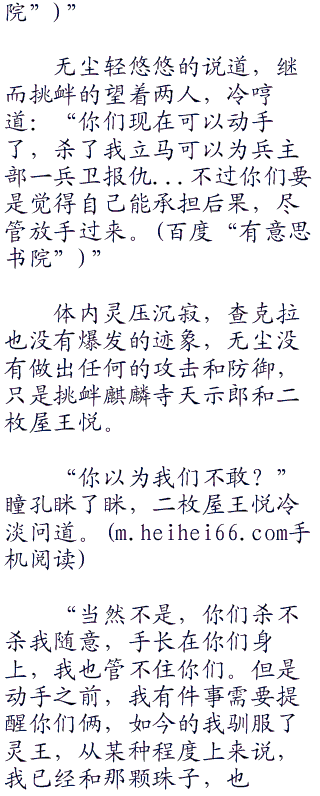 院”)”
无尘轻悠悠的说道，继
而挑衅的望着两人，冷哼
道：“你们现在可以动手
了，杀了我立马可以为兵主
部一兵卫报仇...不过你们要
是觉得自己能承担后果，尽
管放手过来。(百度“有意思
书院”)”
体内灵压沉寂，查克拉
也没有爆发的迹象，无尘没
有做出任何的攻击和防御，
只是挑衅麒麟寺天示郎和二
枚屋王悦。
“你以为我们不敢？”
瞳孔眯了眯，二枚屋王悦冷
淡问道。(m.heihei66.com手
机阅读)
“当然不是，你们杀不
杀我随意，手长在你们身
上，我也管不住你们。但是
动手之前，我有件事需要提
醒你们俩，如今的我驯服了
灵王，从某种程度上来说，
我已经和那颗珠子，也